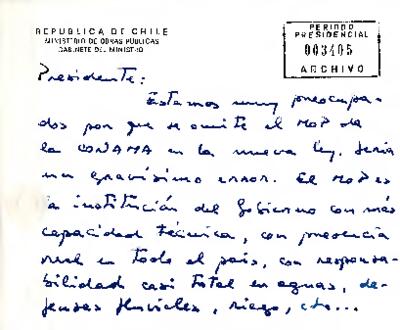 REPUBLICA DE CHILE
MINISTERIO DE OBRAS PUBLICAS
GABINETE DEL MINISTRO
PERIODO
PRESIDENCIAL
003405
ARCHIVO
Presidente:
Estamos muy preocupa-
dos por que se omite el MOP de
la CONAMA en la nueva ley. Sería
un gravísimo error. El MOP es
la institución del Gobierno con más
capacidad técnica, con presencia
real en todo el país, con responsa-
bilidad casi total en aguas, de-
fensas fluviales, riego, etc...